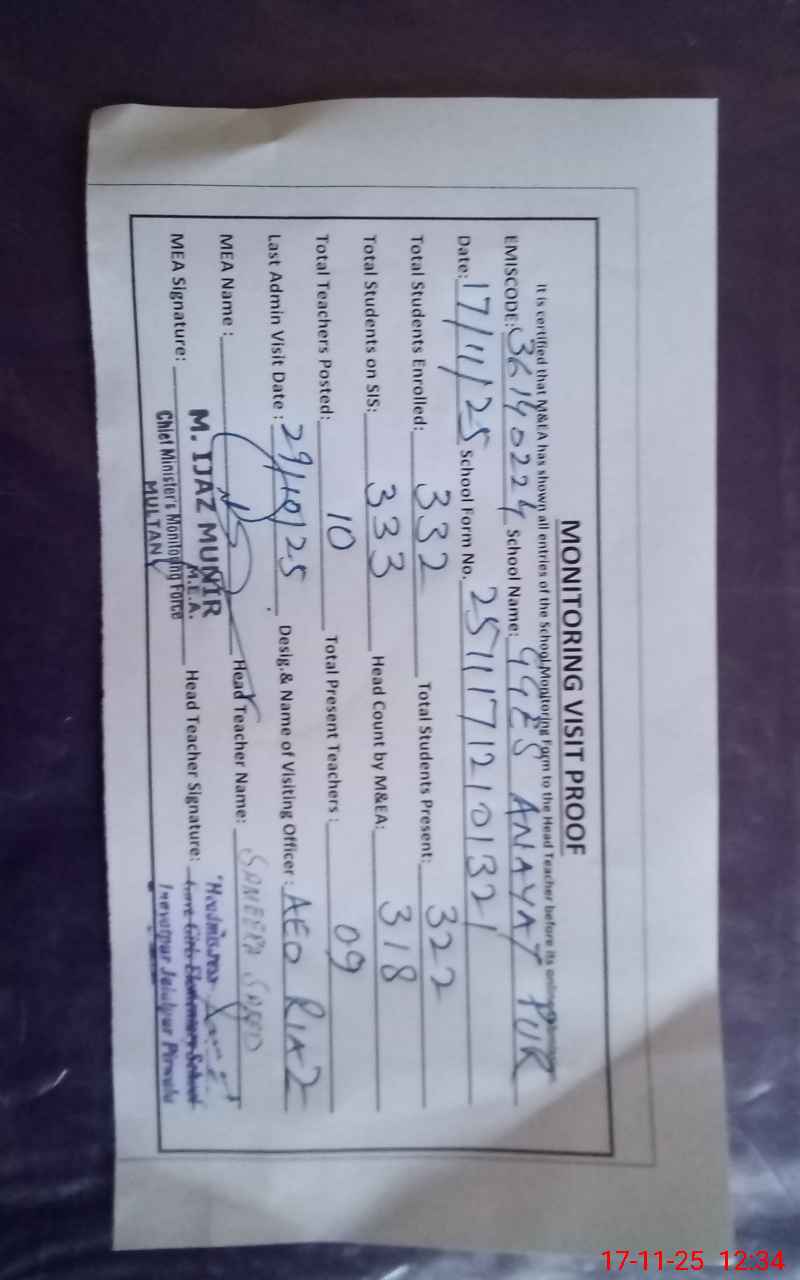 MONITORING VISIT PROOF
It is certified that M&EA has shown all entries of the School Monitoring Form to the Head Teacher before its
EMISCODE: 36140224 School Name: GGES ANAYAT PUR
Date: 17/11/25 School Form No. 25111712101321
Total Students Enrolled: 332 Total Students Present: 322
Total Students on SIS: 333 Head Count by M&EA: 318
Total Teachers Posted: 10 Total Present Teachers : 09
Last Admin Visit Date : 29/10/25 Desig.& Name of Visiting Officer : AEO RIAZ
MEA Name : Head Teacher Name: SAMEERA SAEED
M. IJAZ MUNIR
M.E.A.
MEA Signature: Head Teacher Signature:
Chief Minister's Monitoring Force
MULTAN
Headmistress
Govt Girls Elementary School
Inayatpur Jalalpur Pirwala
17-11-25 12:34